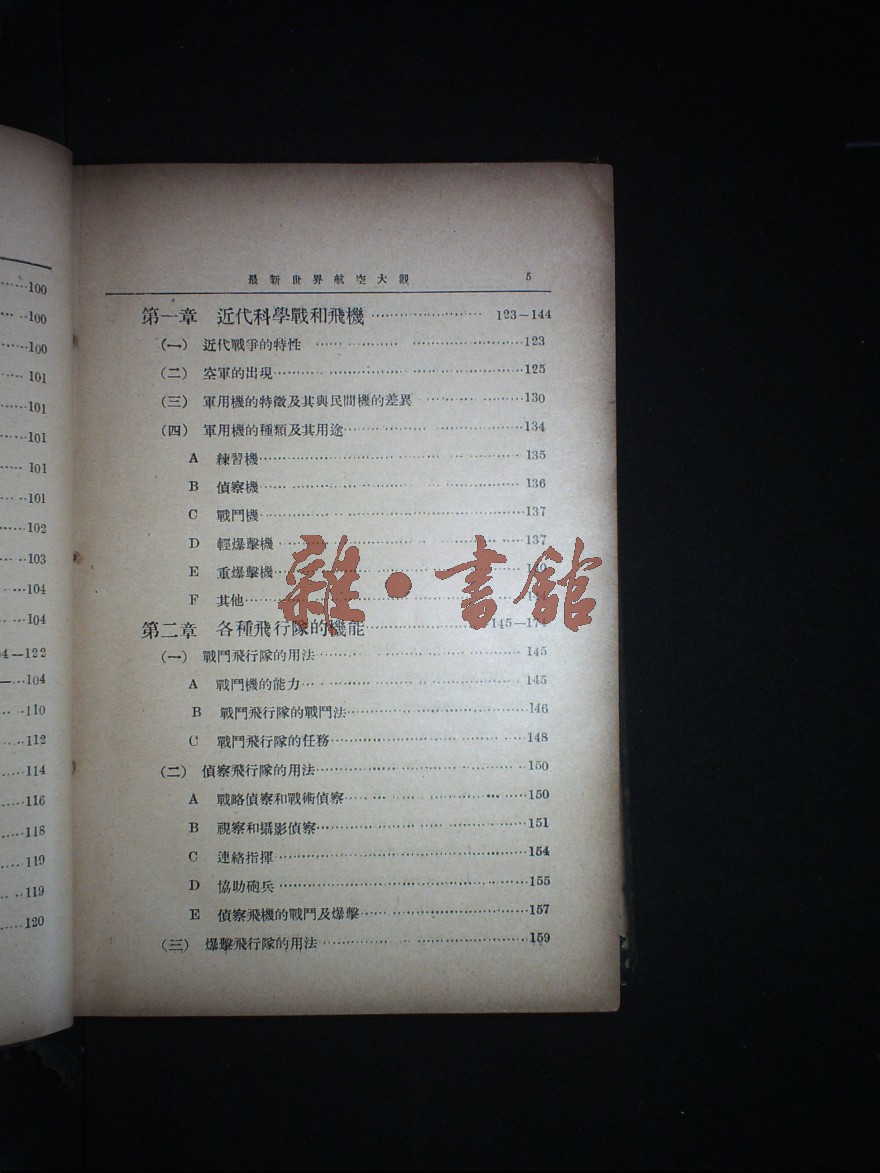 100
100
100
101
101
101
101
101
102
103
104
104
4—122
104
110
112
114
116
118
119
119
120
最新世界航空大觀 5
第一章 近代科學戰和飛機 123—144
(一) 近代戰爭的特性 123
(二) 空軍的出現 125
(三) 軍用機的特徵及其與民間機的差異 130
(四) 軍用機的種類及其用途 134
A 練習機 135
B 偵察機 136
C 戰鬥機 137
D 輕爆擊機 137
E 重爆擊機
F 其他
雜·書館
第二章 各種飛行隊的機能 145—174
(一) 戰鬥飛行隊的用法 145
A 戰鬥機的能力 145
B 戰鬥飛行隊的戰鬥法 146
C 戰鬥飛行隊的任務 148
(二) 偵察飛行隊的用法 150
A 戰略偵察和戰術偵察 150
B 視察和攝影偵察 151
C 連絡指揮 154
D 協助砲兵 155
E 偵察飛機的戰鬥及爆擊 157
(三) 爆擊飛行隊的用法 159